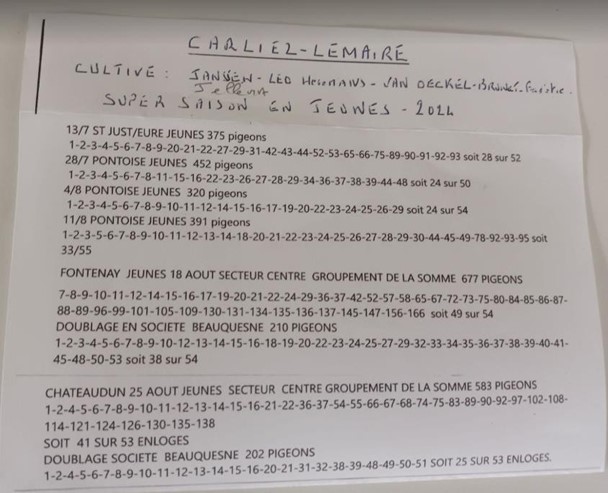 CARLIEZ-LEMAIRE
CULTIVE : JANSSEN - LEO HEREMANS - VAN DECKEL -
Jellema
SUPER SAISON EN JEUNES - 2024
13/7 ST JUST/EURE JEUNES 375 pigeons
1-2-3-4-5-6-7-8-9-20-21-22-27-29-31-42-43-44-52-53-65-66-75-89-90-91-92-93 soit 28 sur 52
28/7 PONTOISE JEUNES 452 pigeons
1-2-3-4-5-6-7-8-11-15-16-22-23-26-27-28-29-34-36-37-38-39-44-48 soit 24 sur 50
4/8 PONTOISE JEUNES 320 pigeons
1-2-3-4-5-6-7-8-9-10-11-12-14-15-16-17-19-20-22-23-24-25-26-29 soit 24 sur 54
11/8 PONTOISE JEUNES 391 pigeons
1-2-3-5-6-7-8-9-10-11-12-13-14-18-20-21-22-23-24-25-26-27-28-29-30-44-45-49-78-92-93-95 soit
33/55
FONTENAY JEUNES 18 AOUT SECTEUR CENTRE GROUPEMENT DE LA SOMME 677 PIGEONS
7-8-9-10-11-12-14-15-16-17-19-20-21-22-24-29-36-37-42-52-57-58-65-67-72-73-75-80-84-85-86-87-
88-89-96-99-101-105-109-130-131-134-135-136-137-145-147-156-166 soit 49 sur 54
DOUBLAGE EN SOCIETE BEAUQUESNE 210 PIGEONS
1-2-3-4-5-6-7-8-9-10-12-13-14-15-16-18-19-20-22-23-24-25-27-29-32-33-34-35-36-37-38-39-40-41-
45-48-50-53 soit 38 sur 54
CHATEAUDUN 25 AOUT JEUNES SECTEUR CENTRE GROUPEMENT DE LA SOMME 583 PIGEONS
1-2-4-5-6-7-8-9-10-11-12-13-14-15-16-21-22-36-37-54-55-66-67-68-74-75-83-89-90-92-97-102-108-
114-121-124-126-130-135-138
SOIT 41 SUR 53 ENLOGES
DOUBLAGE SOCIETE BEAUQUESNE 202 PIGEONS
1-2-4-5-6-7-8-9-10-11-12-13-14-15-16-20-21-31-32-38-39-48-49-50-51 SOIT 25 SUR 53 ENLOGES.